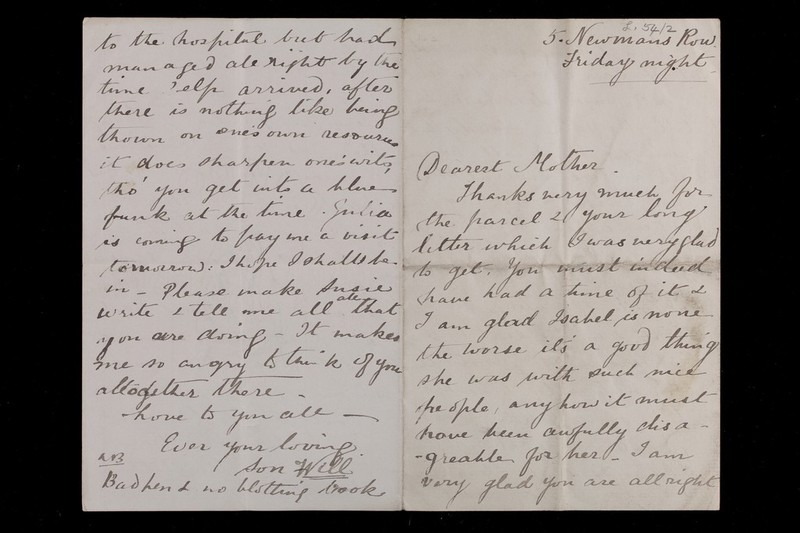 L. 54/2
5. Newmans Row.
Friday night
Dearest Mother.
Thanks very much for
the parcel & your long
letter which I was very glad
to get. You must indeed
have had a time of it &
I am glad Isabel is none
the worse its a good thing
she was with such nice
people, anyhow it must
have been awfully disa-
-greable for her - I am
very glad you are all right
to the hospital but had
managed all right by the
time help arrived, after
there is nothing like being
thown on one's own resources
it does sharpen one's wits,
tho' you get into a blue
funk at the time.
is coming to pay me a visit
tomorrow: I hope I shall be
in - Please make Susie
write & tell me all that
you are doing - It makes
me so angry to think of you
altogether there -
Love to you all —
Ever your loving
son Will
N.B.
Bad pen & no blotting book